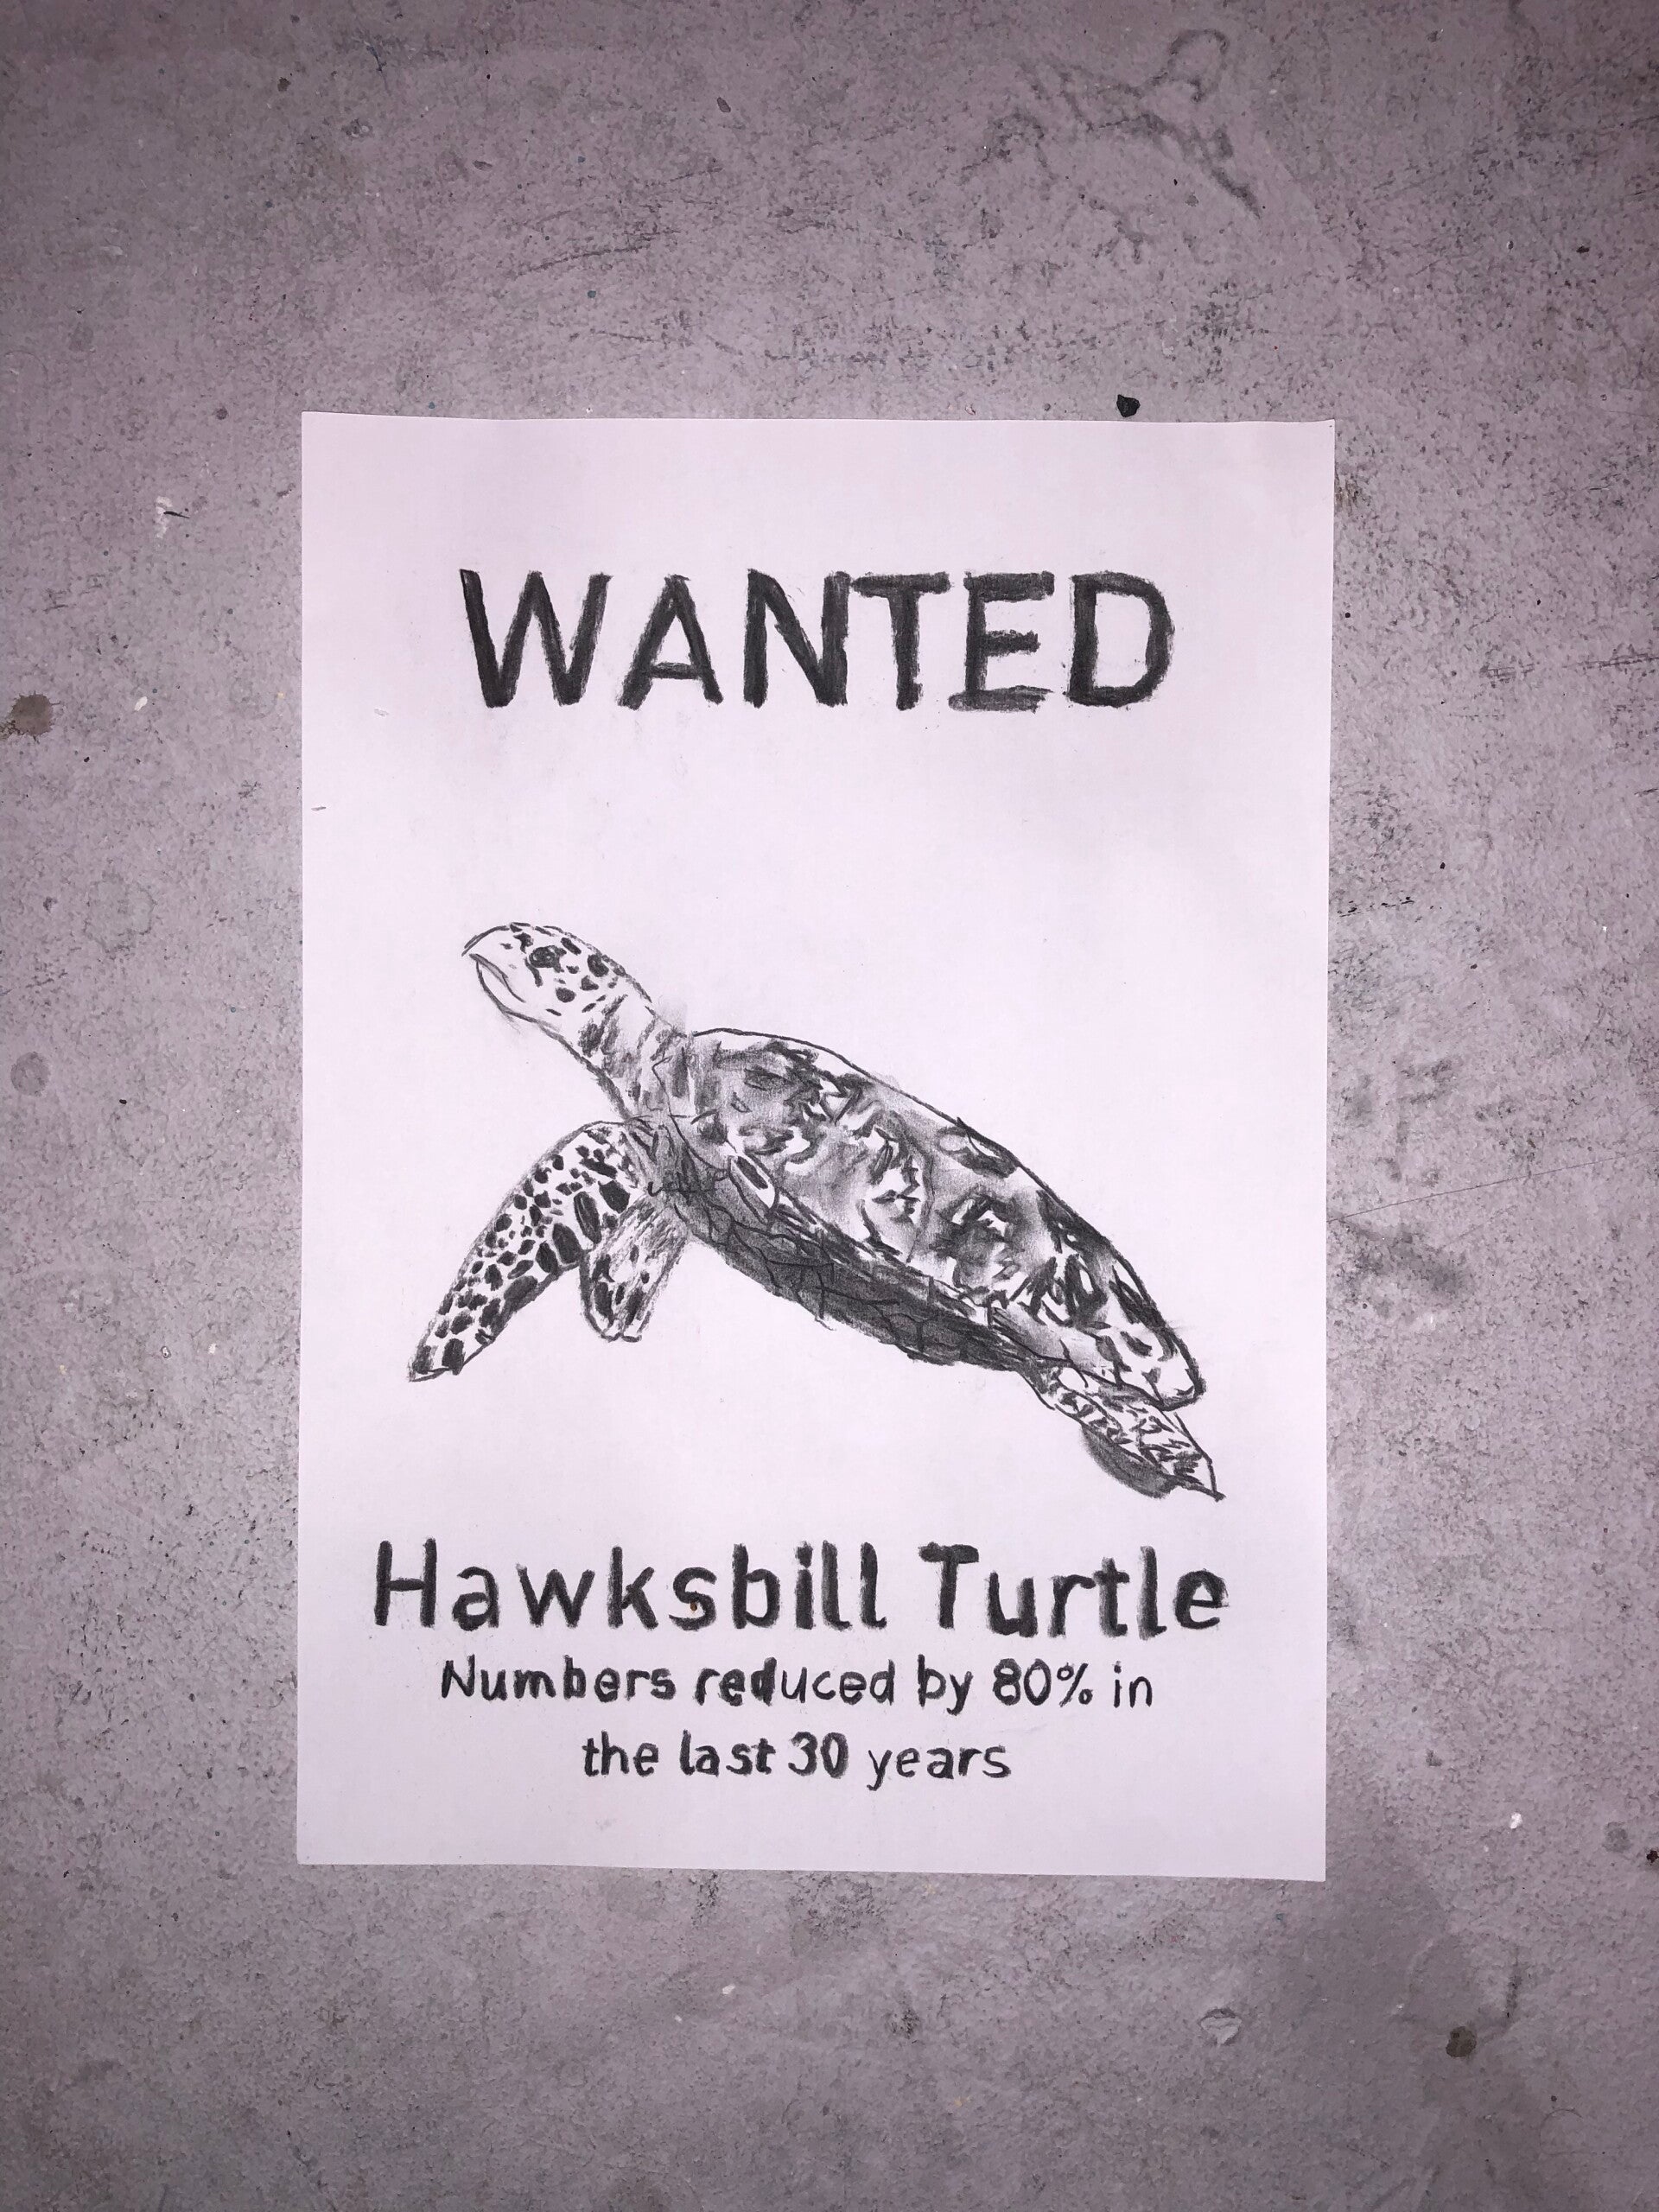 WANTED
Hawksbill Turtle
Numbers reduced by 80% in
the last 30 years